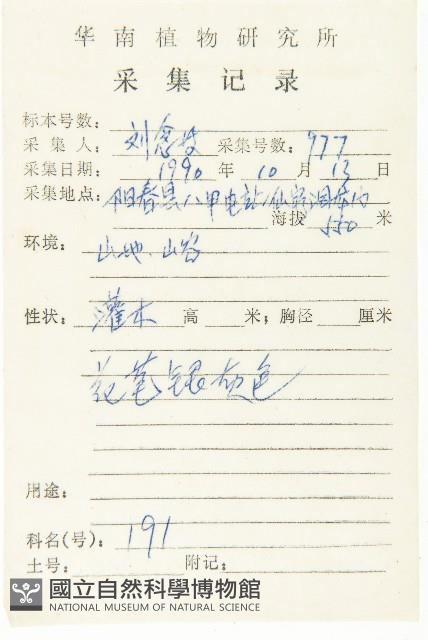 华南植物研究所
采集记录
标本号数:
采集人: 刘念 采集号数: 977
采集日期: 1990 年 10 月 13 日
采集地点: 阳春县八甲电站仙家洞
海拔 550 米
环境: 山地、山谷
性状: 灌木 高 米; 胸径 厘米
花萼银灰色
用途:
科名(号): 191
土号: 附记:
國立自然科學博物館
NATIONAL MUSEUM OF NATURAL SCIENCE